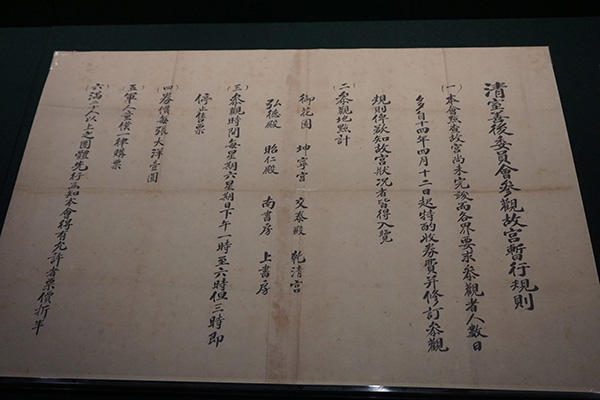 清室善後委員會參觀故宮暫行規則
(一)本會點查故宮尚未完竣而各界要求參觀者人數日
多自十四年四月十二日起特酌收券費并修訂參觀
規則俾欲知故宮狀況者皆得入覽
(二)參觀地點計
御花園 坤寧宮 交泰殿 乾清宮
弘德殿 昭仁殿 南書房 上書房
(三)參觀時間每星期六星期日下午一時至六時但三時即
停止售票
(四)券價每張大洋壹圓
(五)軍人童僕一律購票
(六)滿二十人以上之團體先行函知本會得有允許者票價折半